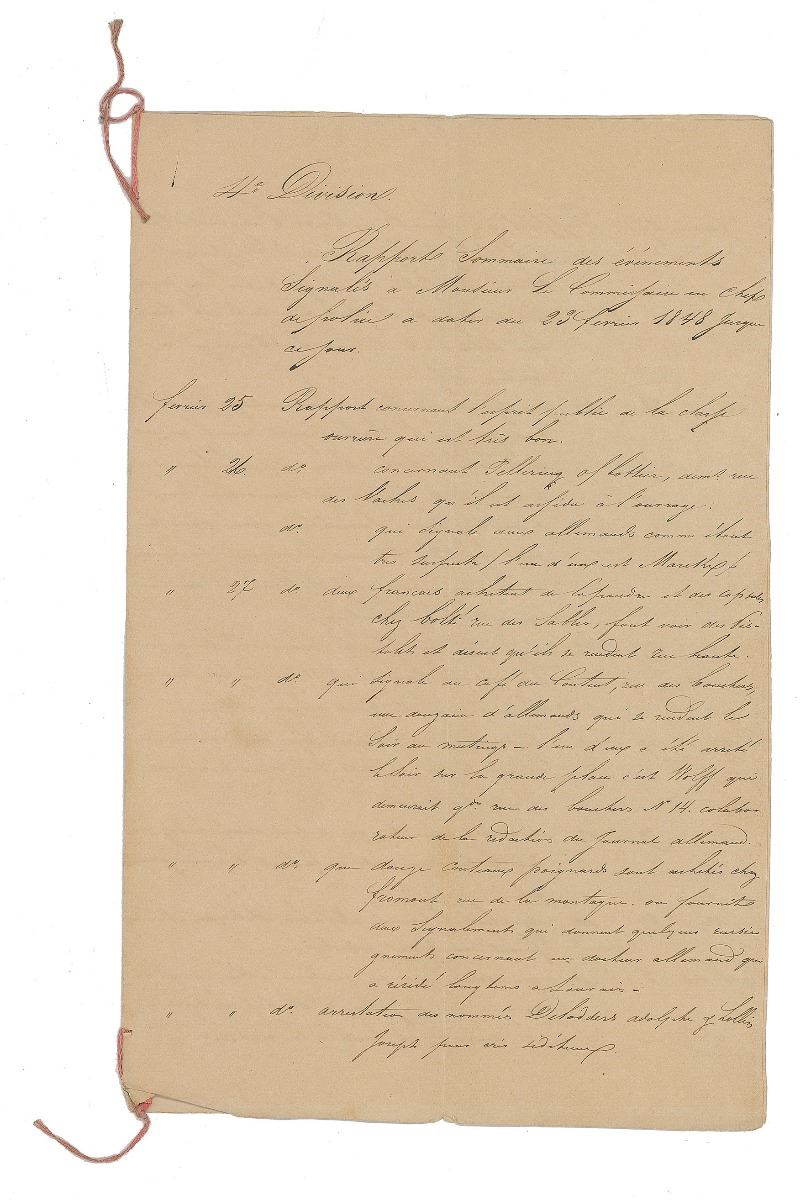 4e Division.
Rapport Sommaire des événements
Signalés a Monsieur Le Commissaire en chef
de police a dater du 23 fevrier 1848 jusque
ce jour.
fevrier 25 Rapport concernant l'esprit public de la classe
ouvrière qui est très bon.
" 26 do. concernant Pellering cottier, demt. rue
des Vaches qu'il est assidu à l'ouvrage.
do. qui signale deux allemands comme étant
très suspects / l'un d'eux est /
" 27 do. deux français achetent de la poudre et des capsules
chez bolté rue des Sables, font voir des Pis-
tolets et disent qu'ils se rendent en haute.
" " do. qui signale au café du rue des bouchers,
une douzaine d'allemands qui se rendent le
soir au meetings – l'un d'eux a été arrêté
le soir sur la grande place c'est Wolff qui
demeurait rue des bouchers No 14. colabo
rateur de la rédaction du Journal allemand.
" " do. que douze couteaux poignards sont achetés chez
fremont rue de la montagne. on fournit
deux Signalements qui donnent quelques rensei
gnements concernant un docteur allemand qui
a résidé longtems a Louvain –
" " do. arrestation des nommés Delodders adolphe
Joseph pour cris séditieux.